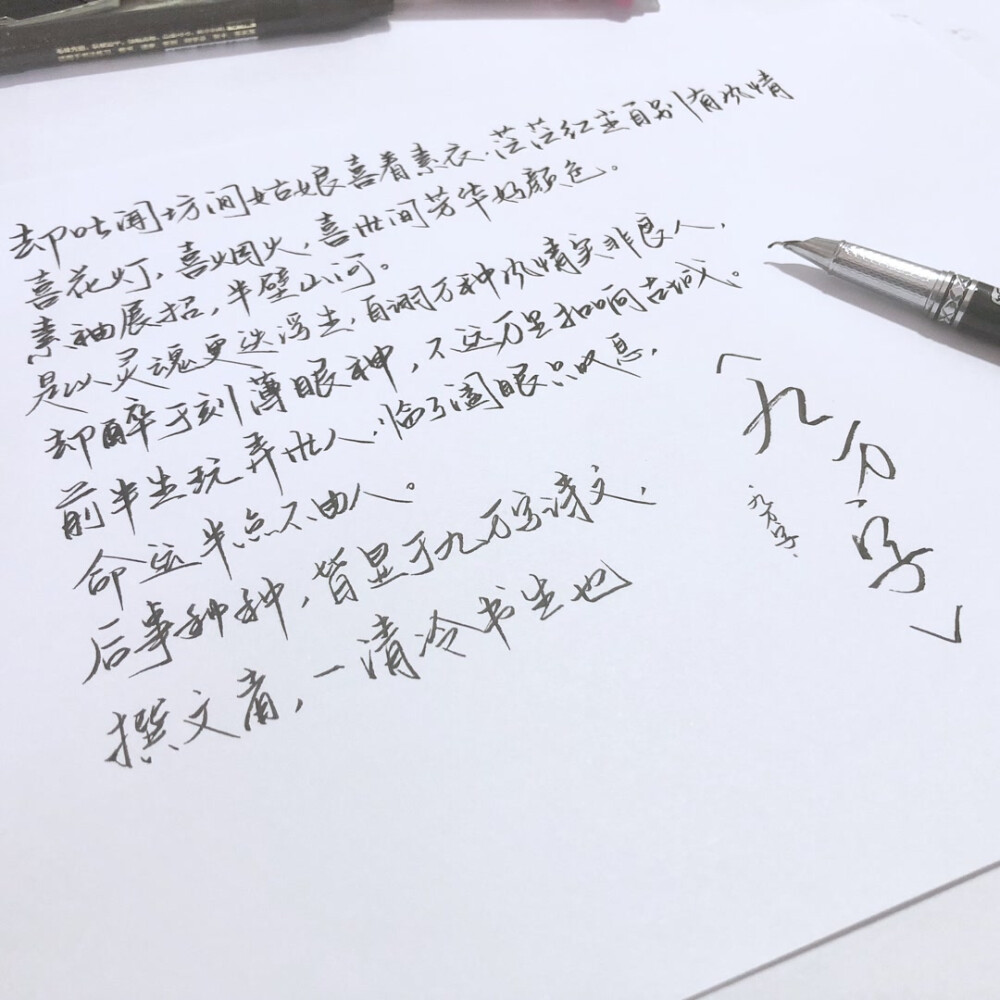 却听闻坊间姑娘喜着素衣.茫茫红尘自别有浓情
喜花灯，喜烟火，喜世间芳华好颜色。
素袖展招，半壁山河。
是以灵魂更迭浮生，自诩万种浓情实非良人，
却醉于刻薄眼神，不远万里扣响古城。
前半生玩弄世人.临了阖眼只叹息，
命运半点不由人。
后事种种，皆显于九万字诗文，
撰文者，一清冷书生也
「九万字」
九万字.